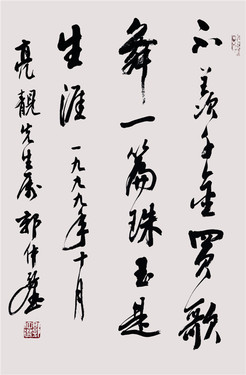 不羡千金買歌
舞一篇珠玉是
生涯 一九九九年十月
亮靚先生屬 郭仲選